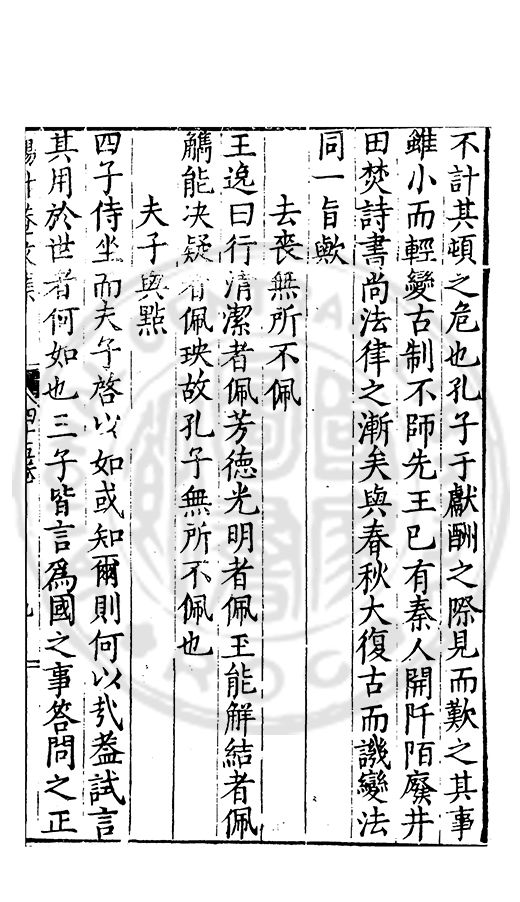 不計其頓之危也孔子于獻酬之際見而歎之其事
雖小而輕變古制不師先王已有秦人開阡陌廢井
田焚詩書尚法律之漸矣與春秋大復古而譏變法
同一旨歟
去喪無所不佩
王逸曰行清潔者佩芳德光明者佩玉能解結者佩
觿能决疑者佩玦故孔子無所不佩也
夫子與點
四子侍坐而夫子啓以如或知爾則何以㢤葢試言
其用於世者何如也三子皆言爲國之事答問之正
升菴文集
四十五卷
九